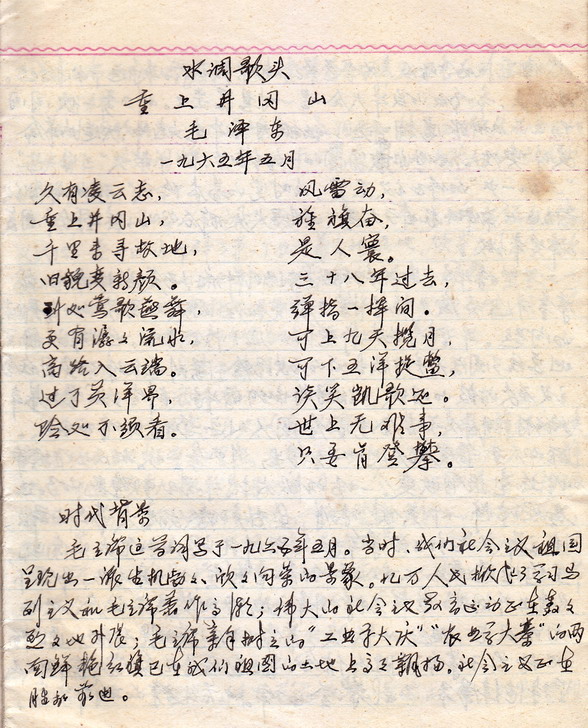 水调歌头
重上井冈山
毛泽东
一九六五年五月
久有凌云志，
重上井冈山，
千里来寻故地，
旧貌变新颜。
到处莺歌燕舞，
更有潺々流水，
高路入云端。
过了黄洋界，
险处不须看。
风雷动，
旌旗奋，
是人寰。
三十八年过去，
弹指一挥间。
可上九天揽月，
可下五洋捉鳖，
谈笑凯歌还。
世上无难事，
只要肯登攀。
时代背景
毛主席这首词写于一九六五年五月。当时，我们社会主义祖国
呈现出一派生机勃々、欣々向荣的景象。亿万人民掀起了学习马
列主义和毛主席著作高潮；伟大的社会主义教育运动正在轰々
烈々地开展；毛主席亲自树立的“工业学大庆”“农业学大寨”的两
面鲜艳红旗已在我们祖国的土地上高々飘扬。社会主义正在
胜利前进。